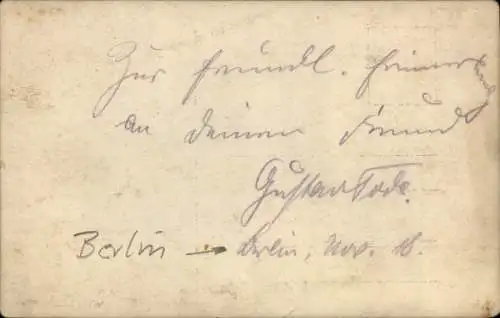 Zur freundl. Erinnerung
an deinen Freund
Gustav Tode.
Berlin → Berlin, Nov. 18.